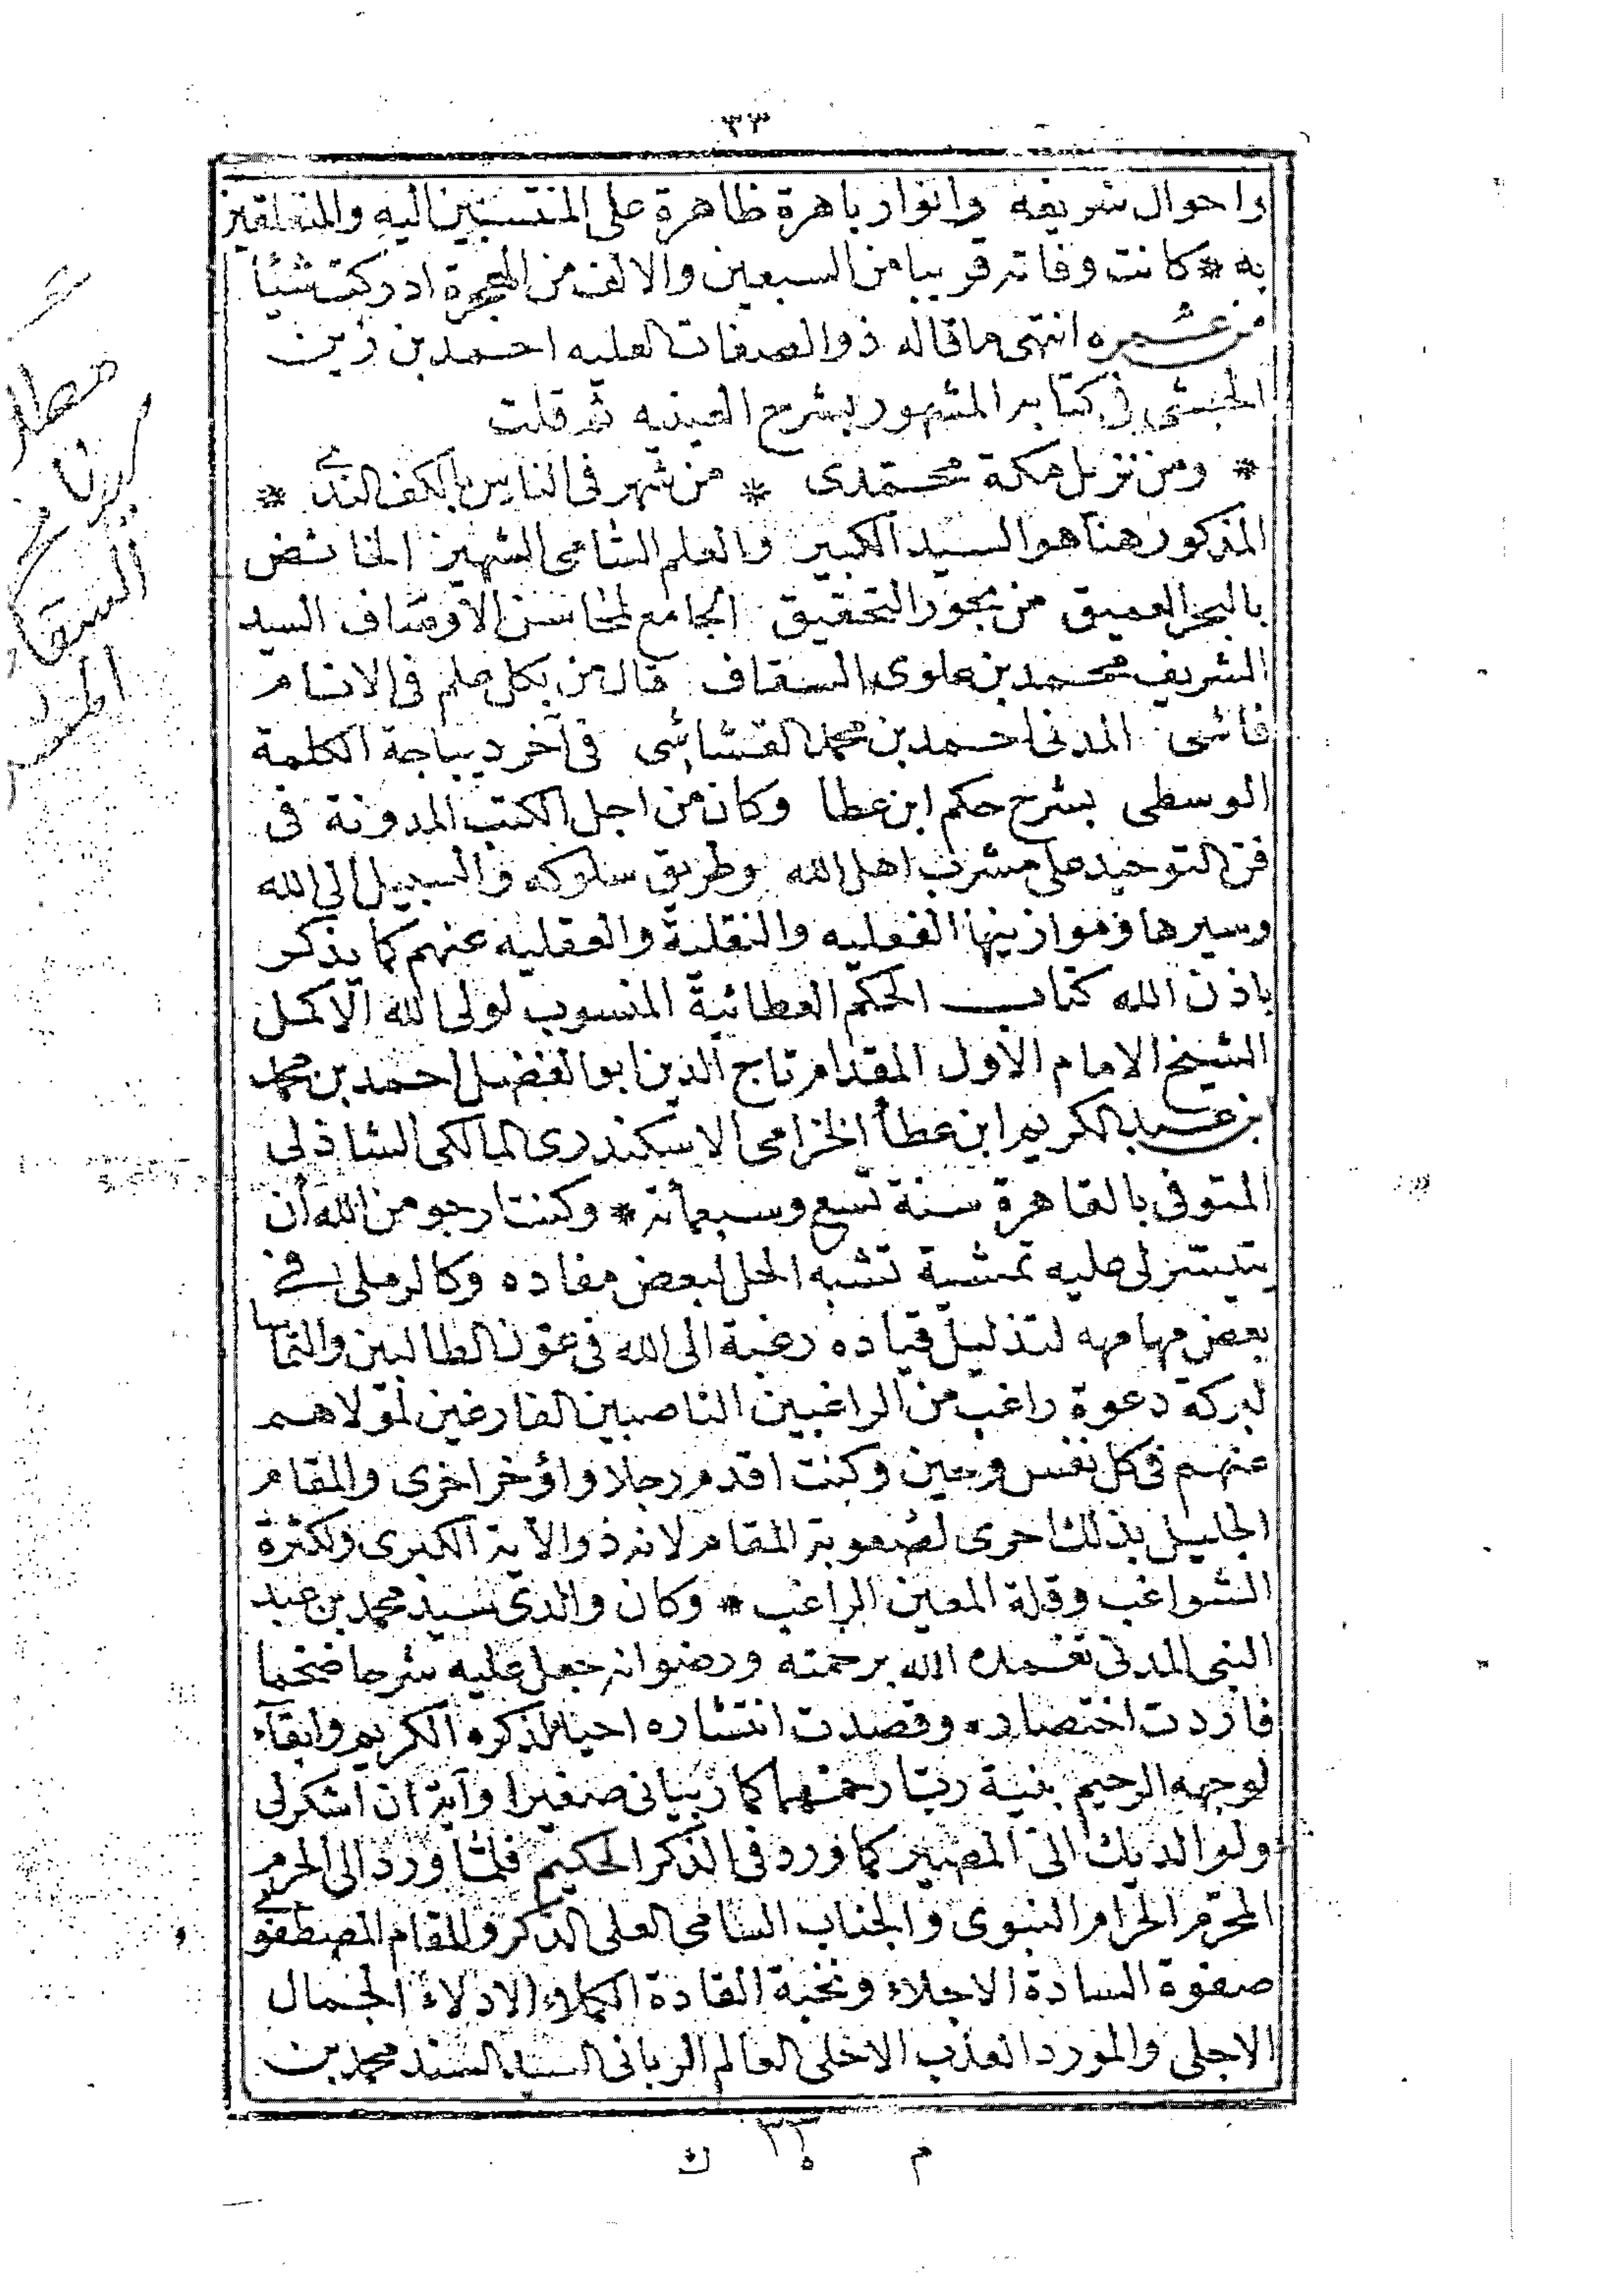 ٣٣
واحوال شريفه وانوار باهرة ظاهرة على المنتسبين اليه والمتعلقين
به * كانت وفاته قريبا من السبعين والالف من الهجرة ادركت شيئا
من عمره انتهى ما قاله ذوالصفات العليه احمد بن زين
الحبشى فى كتابه المشهور بشرح العينيه ثم قلت
* ومن نزيل مكة محمدى * من شهر فى الناس بالكف الندى *
المذكور هنا هو السيد الكبير والعلم الشامى الشهير الخائض
بالبحر العميق من بحور التحقيق الجامع لمحاسن الاوصاف السيد
الشريف محمد بن علوى السقاف قال من بكل علم فى الانام
فاشى المدنى احمد بن محمد القشاشى فى آخر ديباجة الكلمة
الوسطى بشرح حكم ابن عطا وكان من اجل الكتب المدونة فى
فن التوحيد على مشرب اهل الله وطريق سلوكه والسبيل الى الله
وسيرها وموازينها الفعليه والنقلية والعقليه عنهم كما يذكر
باذن الله كتاب الحكم العطائية المنسوب لولى الله الاكمل
الشيخ الامام الاول المقدام تاج الدين ابو الفضل احمد بن محمد
بن عبد الكريم ابن عطا الخزامى الاسكندرى المالكى الشاذلى
المتوفى بالقاهرة سنة تسع وسبعمائة * وكنت ارجو من الله ان
يتيسر لى عليه تمشية تشبه الحل لبعض مفاده وكالرملى فى
بعض مهامهه لتذليل قياده رغبة الى الله فى عون الطالبين والتماسا
لبركة دعوة راغب من الراغبين الناصبين الفارغين لمولاهم
عنهم فى كل نفس وحين وكنت اقدم رجلا واؤخر اخرى والمقام
الجليل بذلك احرى لصعوبة المقام لانه ذو الآية الكبرى ولكثرة
الشواغب وقلة المعين الراغب * وكان والدى سيد محمد بن عبد
النبى المدنى تغمده الله برحمته ورضوانه جعل عليه شرحا ضخما
فاردت اختصاره وقصدت انتشاره احياء لذكره الكريم وابقاء
لوجهه الرحيم بنية رب ارحمهما كما ربيانى صغيرا وآية ان اشكر لى
ولوالديك الى المصير كما ورد فى الذكر الحكيم فلما ورد الى الحرم
المحرم الحرام النبوى والجناب السامى العلى الذكر والمقام المصطفوى
صفوة السادة الاجلاء ونخبة القادة الكملاء الادلاء الجمال
الاجلى والمورد العذب الاحلى العالم الربانى السيد السند محمد بن
٣٣
م ه ك